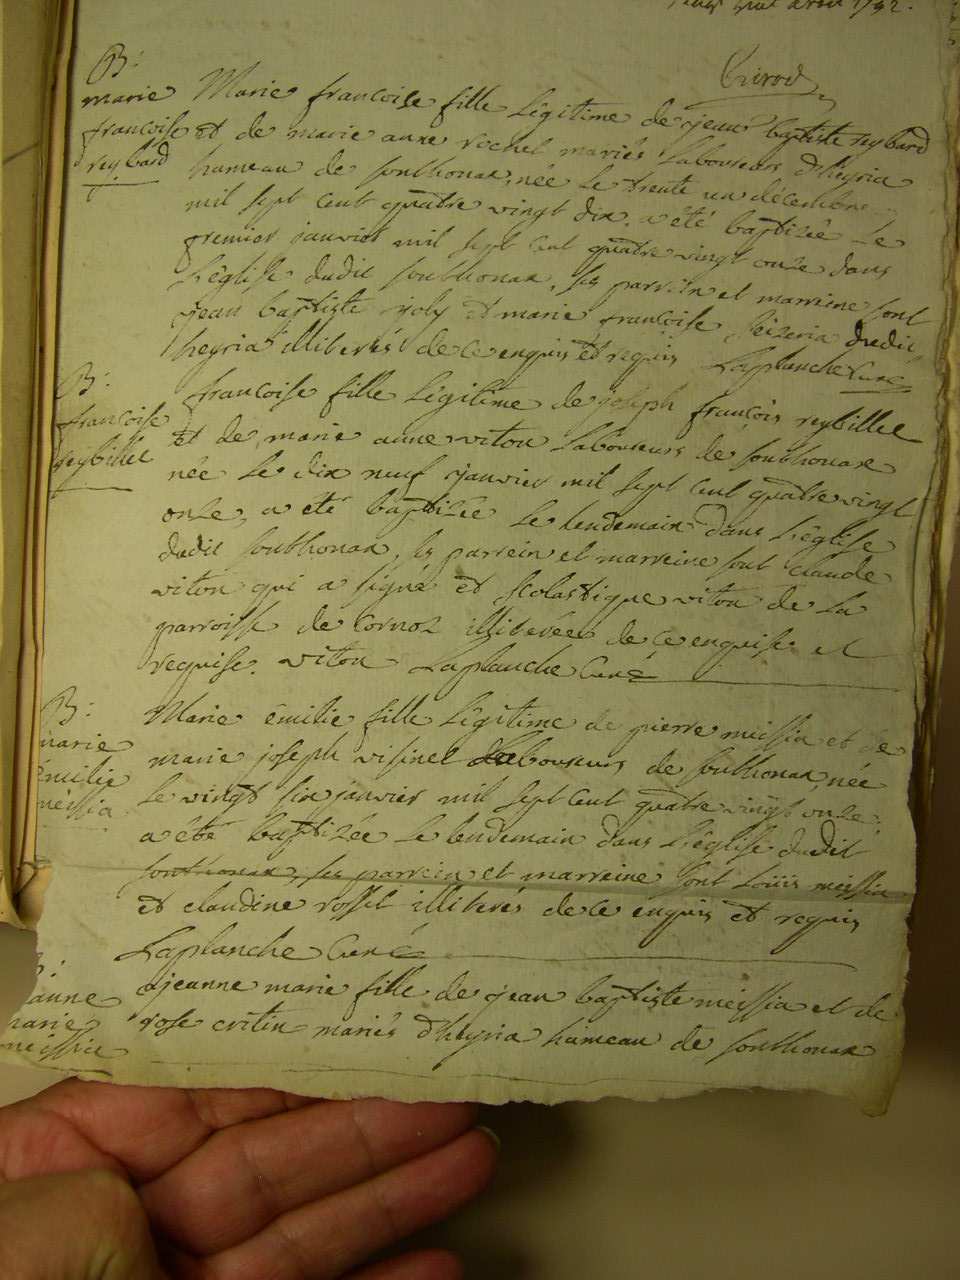 huit avril 1792.
Girod
B:
marie
francoise
reybard
Marie francoise fille Légitime de jean baptiste reybard
et de marie anne rochet mariés Laboureurs d'heyria
hameau de fonthonax, née Le trente un décembre
mil sept cent quatre vingt dix a été baptizée Le
premier janvier mil sept cent quatre vingt onze dans
L'église dudit fonthonax, ses parrein et marreine sont
jean baptiste joly et marie francoise seizeria dudit
heyria illiterés de ce enquis et requis Laplanche Curé
B:
francoise
reybillet
francoise fille Légitime de joseph francois reybillet
et de marie anne viton Laboureurs de fonthonax
née Le dix neuf janvier mil sept cent quatre vingt
onze, a été baptizée Le lendemain dans L'église
dudit fonthonax, ses parrein et marreine sont claude
viton qui a signé et scolastique viton de La
parroisse de Cornoz illiterée de ce enquise et
requise. viton Laplanche Curé
B:
marie
émilie
meissia
Marie émilie fille Légitime de pierre meissia et de
marie joseph visinet Laboureurs de fonthonax, née
Le vingt six janvier mil sept cent quatre vingt onze,
a été baptizée Le lendemain dans L'église dudit
fonthonax, ses parrein et marreine sont Loüis meissia
et claudine rosset illiterés de ce enquis et requis
Laplanche Curé
B:
jeanne
marie
meissia
jeanne marie fille de jean baptiste meissia et de
rose critin mariés d'heyria hameau de fonthonax